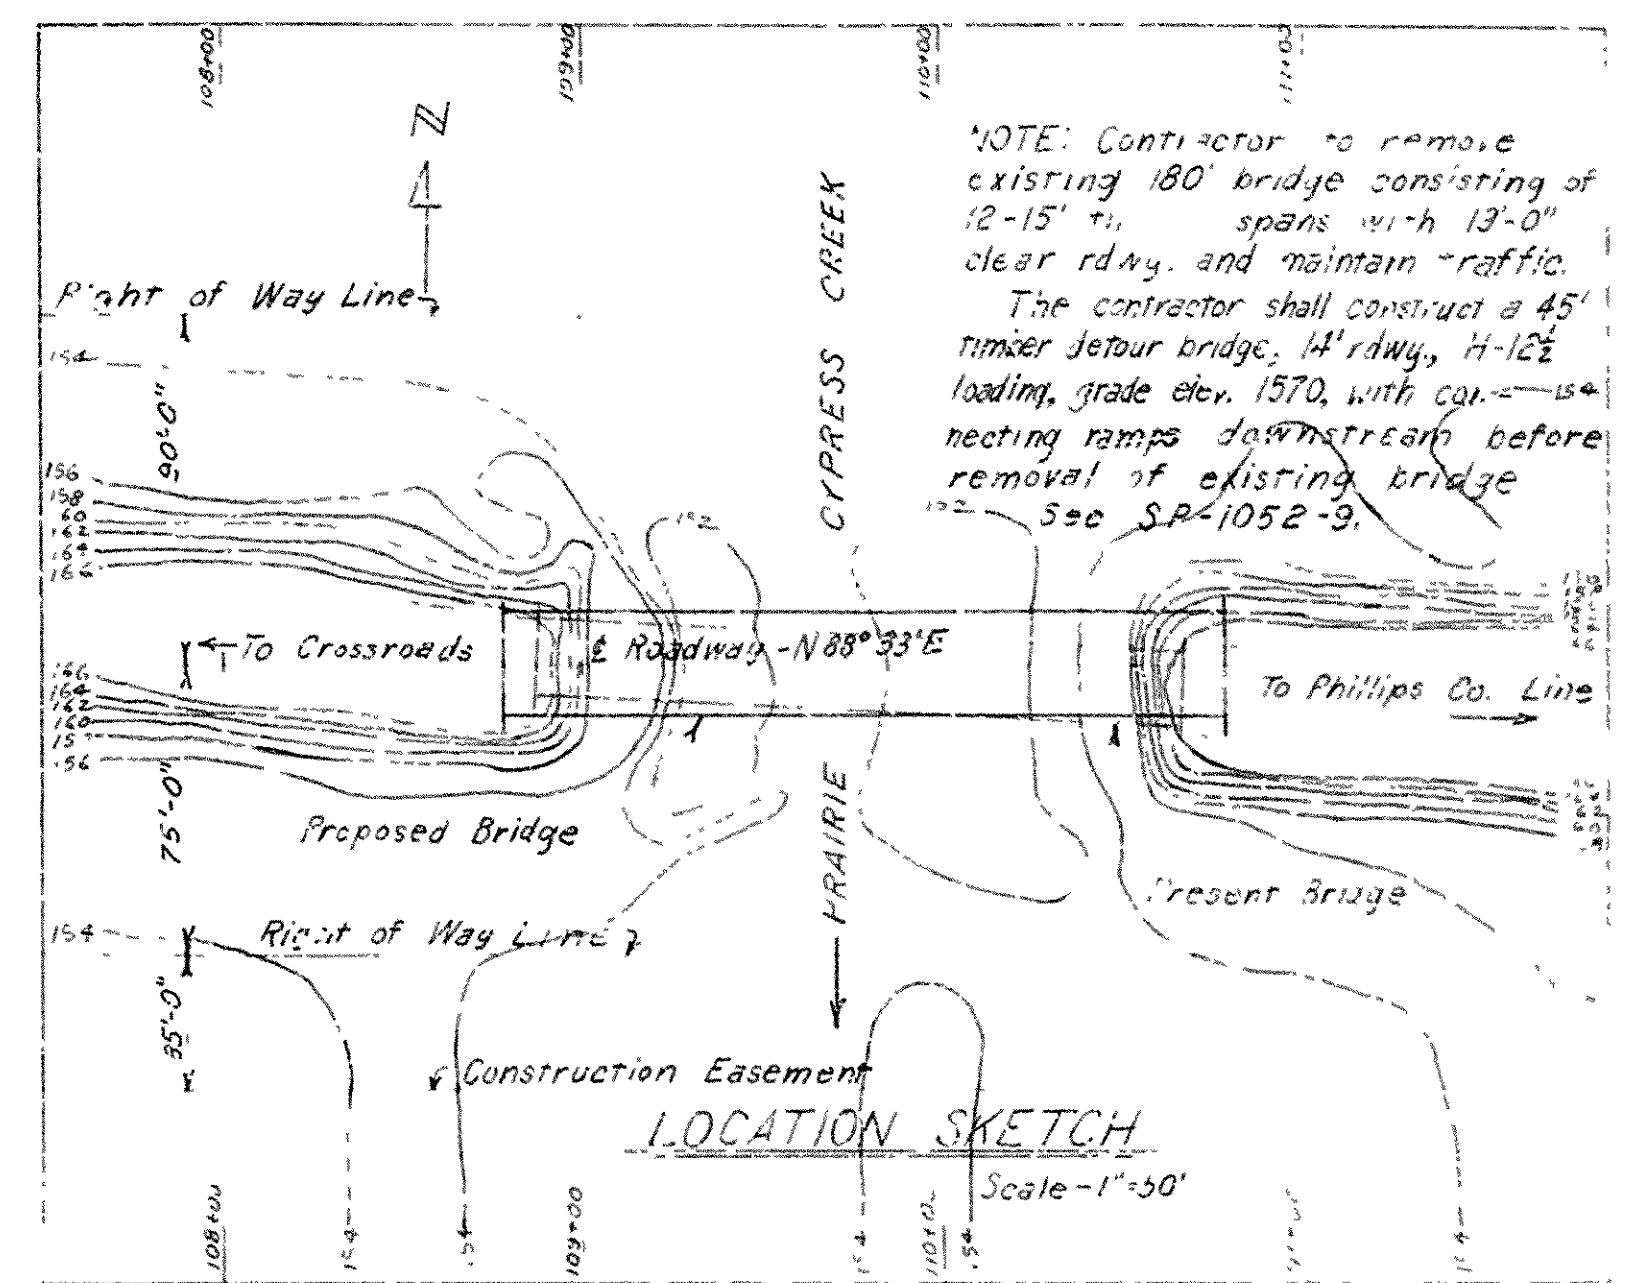 108+00
109+00
110+00
111+00
N
NOTE: Contractor to remove
existing 180' bridge consisting of
12-15' spans with 13'-0"
clear rdwy. and maintain traffic.
The contractor shall construct a 45'
timber detour bridge, 14' rdwy., H-12½
loading, grade elev. 157.0, with con-
necting ramps downstream before
removal of existing bridge
See SP-1052-9.
CYPRESS CREEK
Right of Way Line
154
154
90'-0"
156
158
160
162
164
166
152
152
To Crossroads
℄ Roadway - N 88° 33' E
To Phillips Co. Line
166
164
162
160
157
156
75'-0"
Proposed Bridge
PRAIRIE
Present Bridge
154
Right of Way Line
35'-0"
Construction Easement
LOCATION SKETCH
Scale - 1" = 50'
108+00
154
154
109+00
154
110+00
154
111+00
154